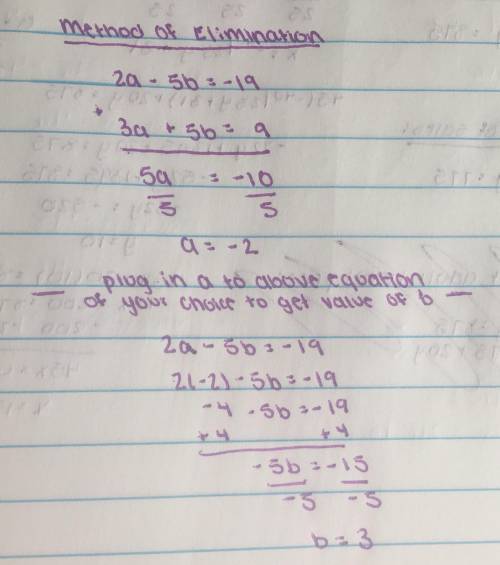 Method of Elimination
2a - 5b = -19
+
3a + 5b = 9
5a = -10
5 5
a = -2
— plug in a to above equation
of your choice to get value of b —
2a - 5b = -19
2(-2) - 5b = -19
-4 - 5b = -19
+4 +4
-5b = -15
-5 -5
b = 3